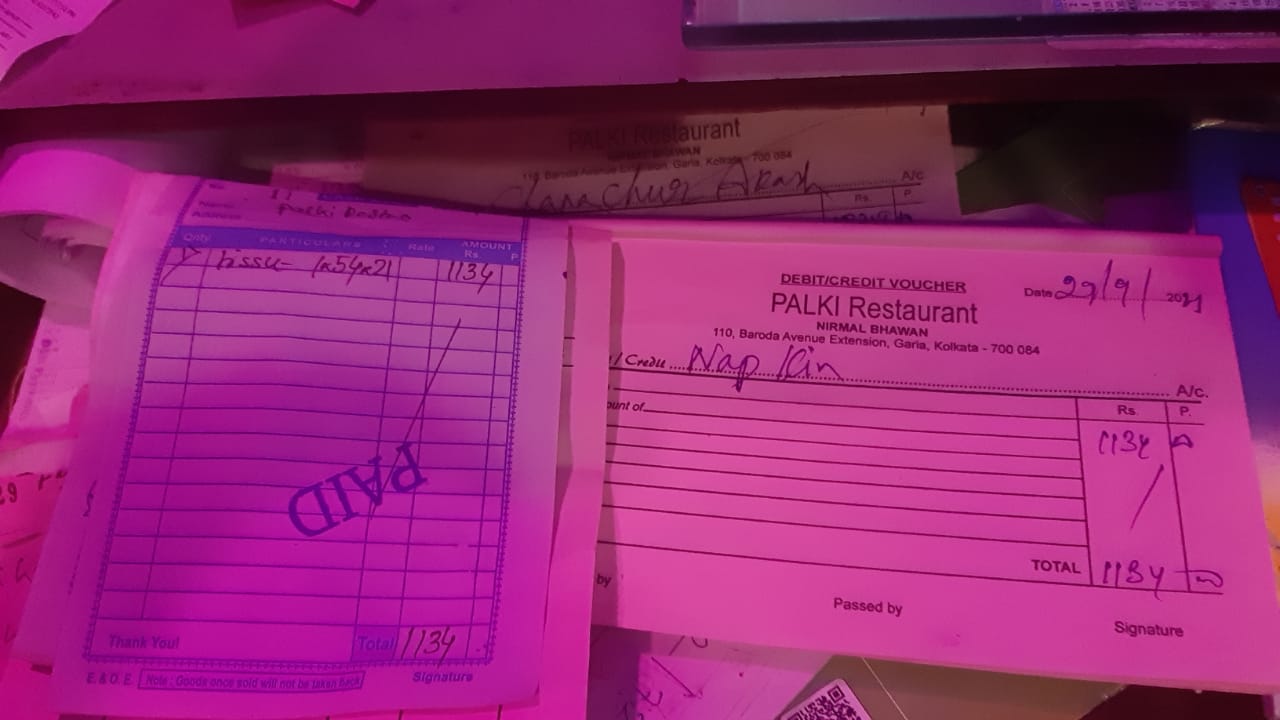 PALKI Restaurant
NIRMAL BHAWAN
110, Baroda Avenue Extension, Garia, Kolkata - 700 084
Chanachur Akash
A/c
Rs.
P.
Name
Address
Palki
Qnty PARTICULARS Rate AMOUNT
Rs. P.
tissu- 1x54x21 1134
PAID
Thank You! Total 1134
E. & O. E. Note : Goods once sold will not be taken back Signature
DEBIT/CREDIT VOUCHER
Date 29/9/2021
PALKI Restaurant
NIRMAL BHAWAN
110, Baroda Avenue Extension, Garia, Kolkata - 700 084
/ Credit Nap Kin A/c.
ount of Rs. P.
1134
TOTAL 1134
by Passed by Signature
29